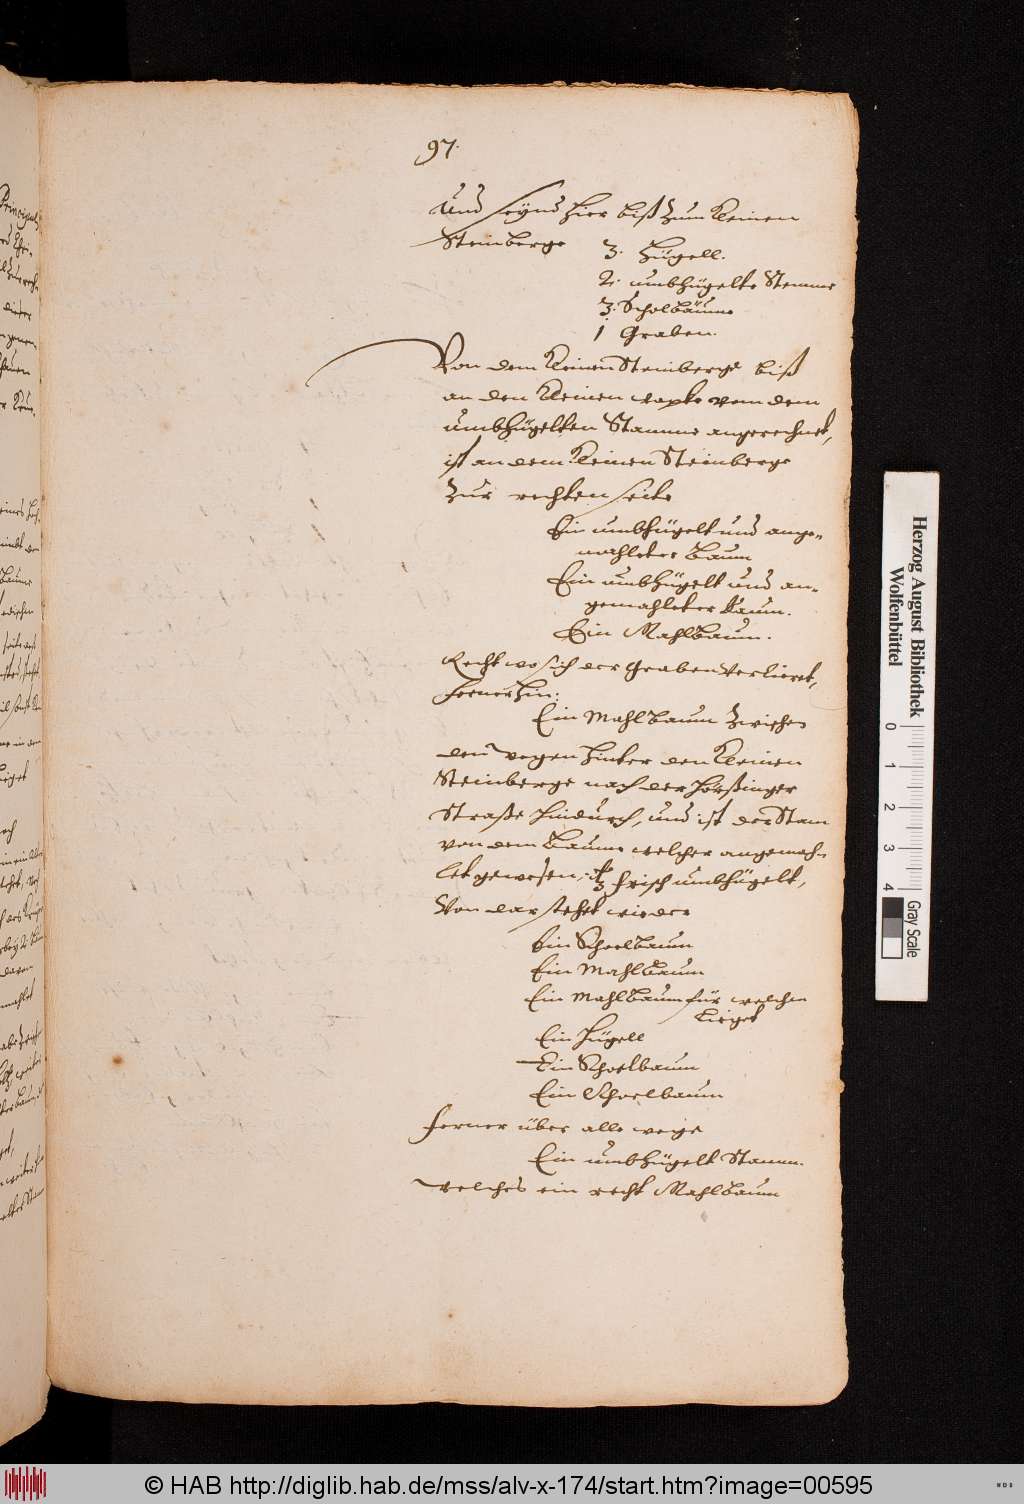 97.
Und seynd hier biß zum Kleinen
Steinberge
3. Hügell.
2. umbhügelte Stemme
3. Scholbäume
1 Graben.
Von dem Kleinen Steinberge biß
an den Kleinen von dem
umbhügelten Stamme angerechnet,
ist an dem Kleinen Steinberge
zur rechten seite
Ein umbhügelt und ange-
mahleter Baum
Ein umbhügelt und an-
gemahleter Baum.
Ein Mahlbaum.
Recht wo sich der Graben verlieret,
ferner hin:
Ein Mahlbaum zwischen
den wegen hinter den Kleinen
Steinberge nach der
Straße hindurch, und ist der Stam
von dem Baume welcher angemah-
let gewesen, frisch umbhügelt,
Von dar stehet wieder
Ein Schoelbaum
Ein Mahlbaum
Ein Mahlbaum für welchen
lieget
Ein Hügell
Ein Schoelbaum
Ein Schoelbaum
ferner über alle wege
Ein umbhügelt Stamm.
welches ein recht Mahlbaum
Herzog August Bibliothek
Wolfenbüttel
0 1 2 3 4
Gray Scale
© HAB http://diglib.hab.de/mss/alv-x-174/start.htm?image=00595